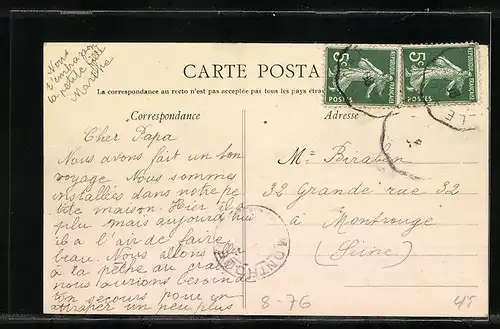 Nous
t'embrassons
la petite
Marthe
CARTE POSTA
La correspondance au recto n'est pas acceptée par tous les pays étrang
Correspondance
Adresse
5c
REPUBLIQUE FRANÇAISE
POSTES
5c
REPUBLIQUE FRANÇAISE
POSTES
LE
Cher Papa
Nous avons fait un bon
voyage. Nous sommes
installées dans notre pe
tite maison. Hier il a
plu mais aujourd'hui
il a l'air de faire
beau. Nous allons
à la pêche au
nous aurions besoin de
ton secours pour en
attraper un peu plus
Mr Biraben
32 Grande rue 32
à Montrouge
(Seine)
MONTROUGE
8-76
45